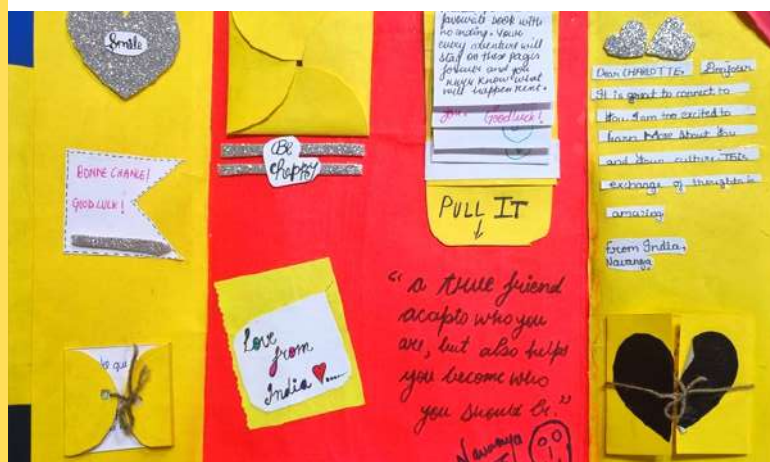 Smile
BONNE CHANCE!
GOOD LUCK!
Be
happy
favourite book with
no ending. Your
every adventure will
stay on these pages
forever and you
never know what
will happen next.
Goodluck!
PULL IT
Love
from
India
"a true friend
acepts who you
are, but also helps
you become who
you should be."
Navanya
Dear CHARLOTTE, Bonjour
It is great to connect to
you. I am too excited to
learn More About You
and Your culture. This
exchange of thoughts is
amazing
From India,
Navanya